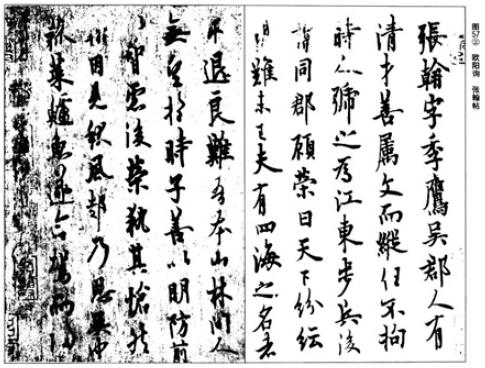 图57② 欧阳询 张翰帖
張翰字季鷹吳郡人有
清才善屬文而縱任不拘
時人號之為江東步兵後
謂同郡顧榮曰天下紛紜
禍難未已夫有四海之名者
求退良難吾本山林間人
無望於時子善以明防前
以智慮後榮執其愴然
翰因見秋風起乃思吳中
菰菜鱸魚遂命駕而歸